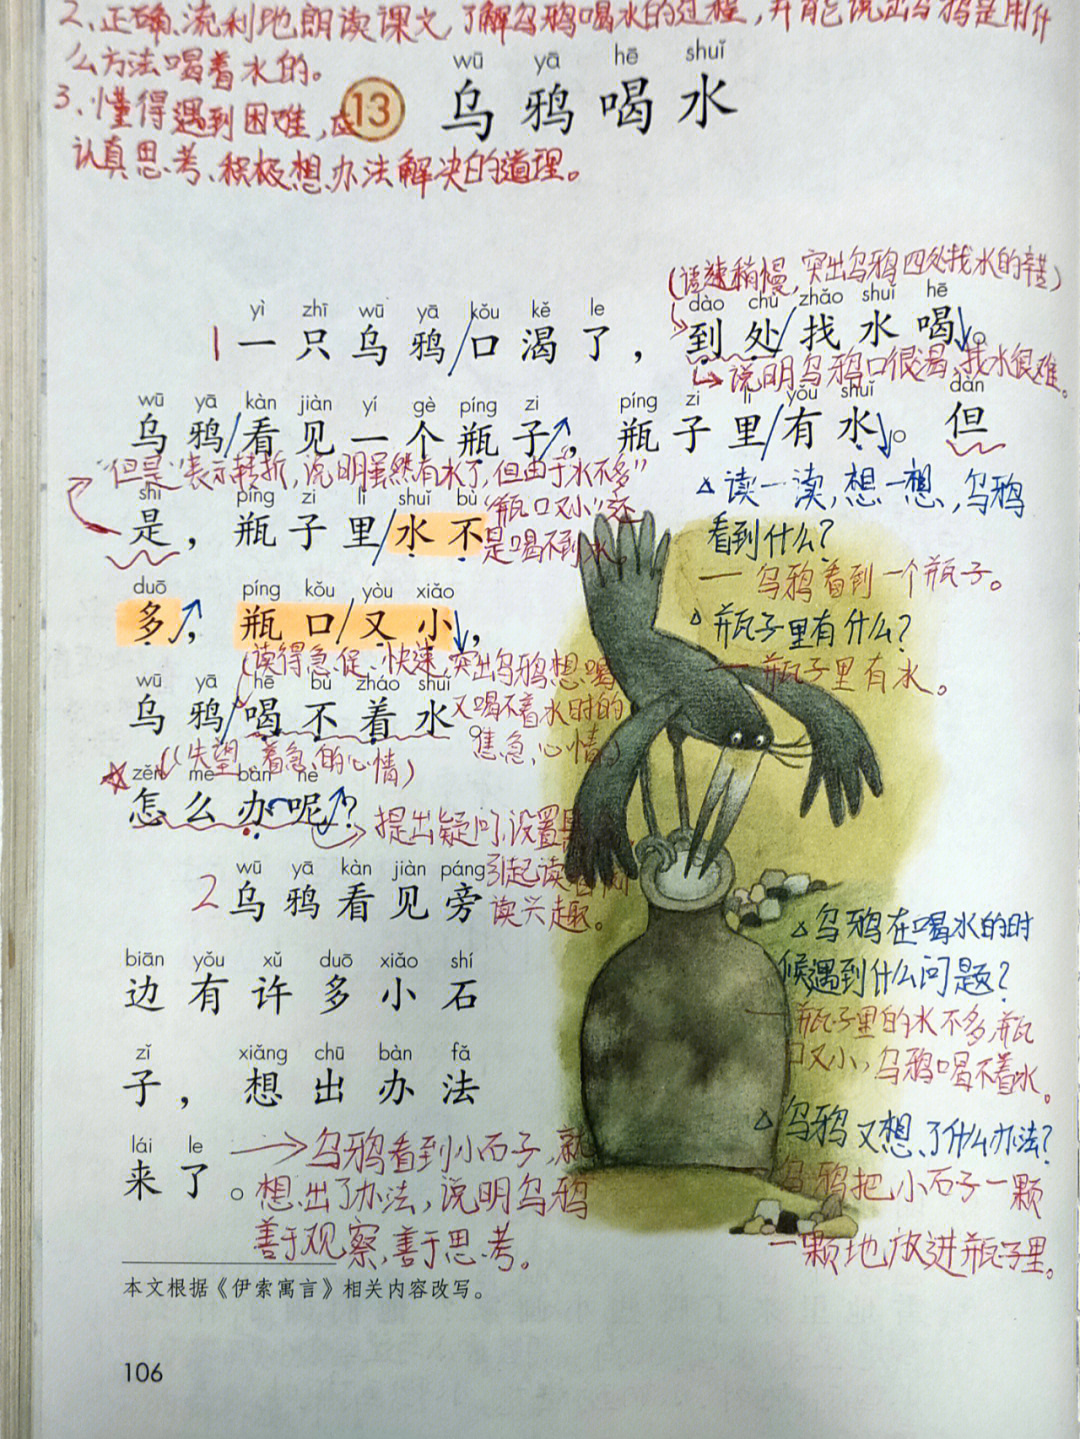 2、正确、流利地朗读课文,了解乌鸦喝水的过程,并能说出乌鸦是用什
么方法喝着水的。
3、懂得遇到困难,应
认真思考、积极想办法解决的道理。
13
wū yā hē shuǐ
乌鸦喝水
(语速稍慢,突出乌鸦四处找水的辛苦)
yì zhī wū yā kǒu kě le dào chù zhǎo shuǐ hē
1 一只乌鸦/口渴了,到处/找水喝。
说明乌鸦口很渴,找水很难。
wū yā kàn jiàn yí gè píng zi píng zi lǐ yǒu shuǐ dàn
乌鸦/看见一个瓶子,瓶子里/有水。但
"但是"表示转折,说明虽然有水了,但由于水不多"
"瓶口又小"还
是喝不到水。
shì píng zi lǐ shuǐ bù
是,瓶子里/水不
duō píng kǒu yòu xiǎo
多,瓶口/又小,
(读得急促、快速,突出乌鸦想喝
又喝不着水时的
焦急心情)
wū yā hē bù zháo shuǐ
乌鸦/喝不着水
(失望、着急的心情)
zěn me bàn ne
怎么办呢?
提出疑问,设置
引起读
读兴趣。
△读一读,想一想,乌鸦
看到什么?
— 乌鸦看到一个瓶子。
△瓶子里有什么?
— 瓶子里有水。
wū yā kàn jiàn páng
2 乌鸦看见旁
biān yǒu xǔ duō xiǎo shí
边有许多小石
zǐ xiǎng chū bàn fǎ
子,想出办法
lái le
来了。
→乌鸦看到小石子,就
想出了办法,说明乌鸦
善于观察,善于思考。
△乌鸦在喝水的时
候遇到什么问题?
— 瓶子里的水不多,瓶
口又小,乌鸦喝不着水。
△乌鸦又想了什么办法?
乌鸦把小石子一颗
一颗地放进瓶子里。
本文根据《伊索寓言》相关内容改写。
106